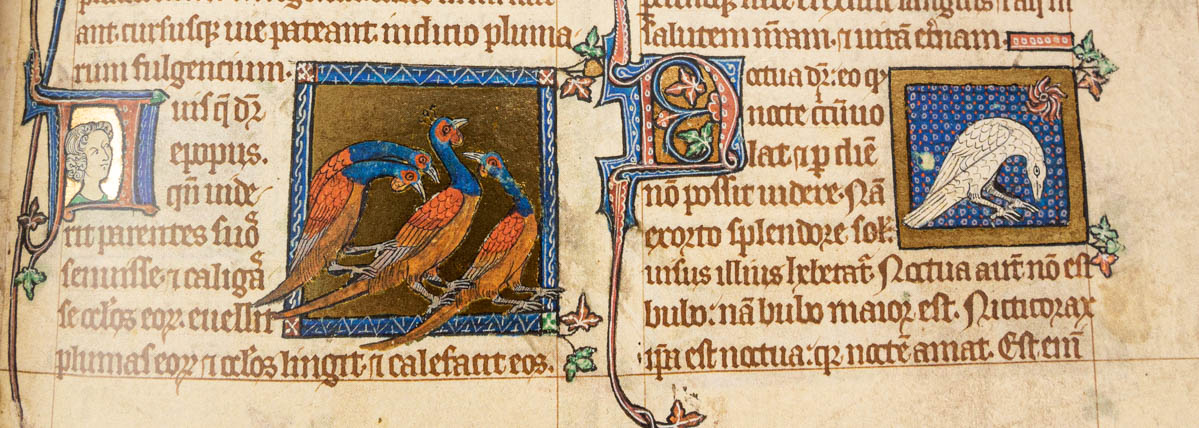 ant. cursusq; uie pateant indicio pluma
rum fulgencium.
uisq̃ dr̃
epopus.
qñ uide
rit parentes suos
senuisse ⁊ caligas
se oc̃los eoꝝ. euellit
plumas eoꝝ ⁊ oc̃los lingit ⁊ calefacit eos.
salutem nr̃am. ⁊ uitã et̃nam.
Noctua dr̃. eo q̃
nocte
uo
lat ⁊ ꝑ diẽ
nõ possit uidere. Nã
exorto splendore sol̃.
uisus illius hebetat᷑. Noctua aut̃ nõ est
bubo: nã bubo maior est. Nicticorax
ip̃a est noctua: qꝛ noctẽ amat. Est eni᷑